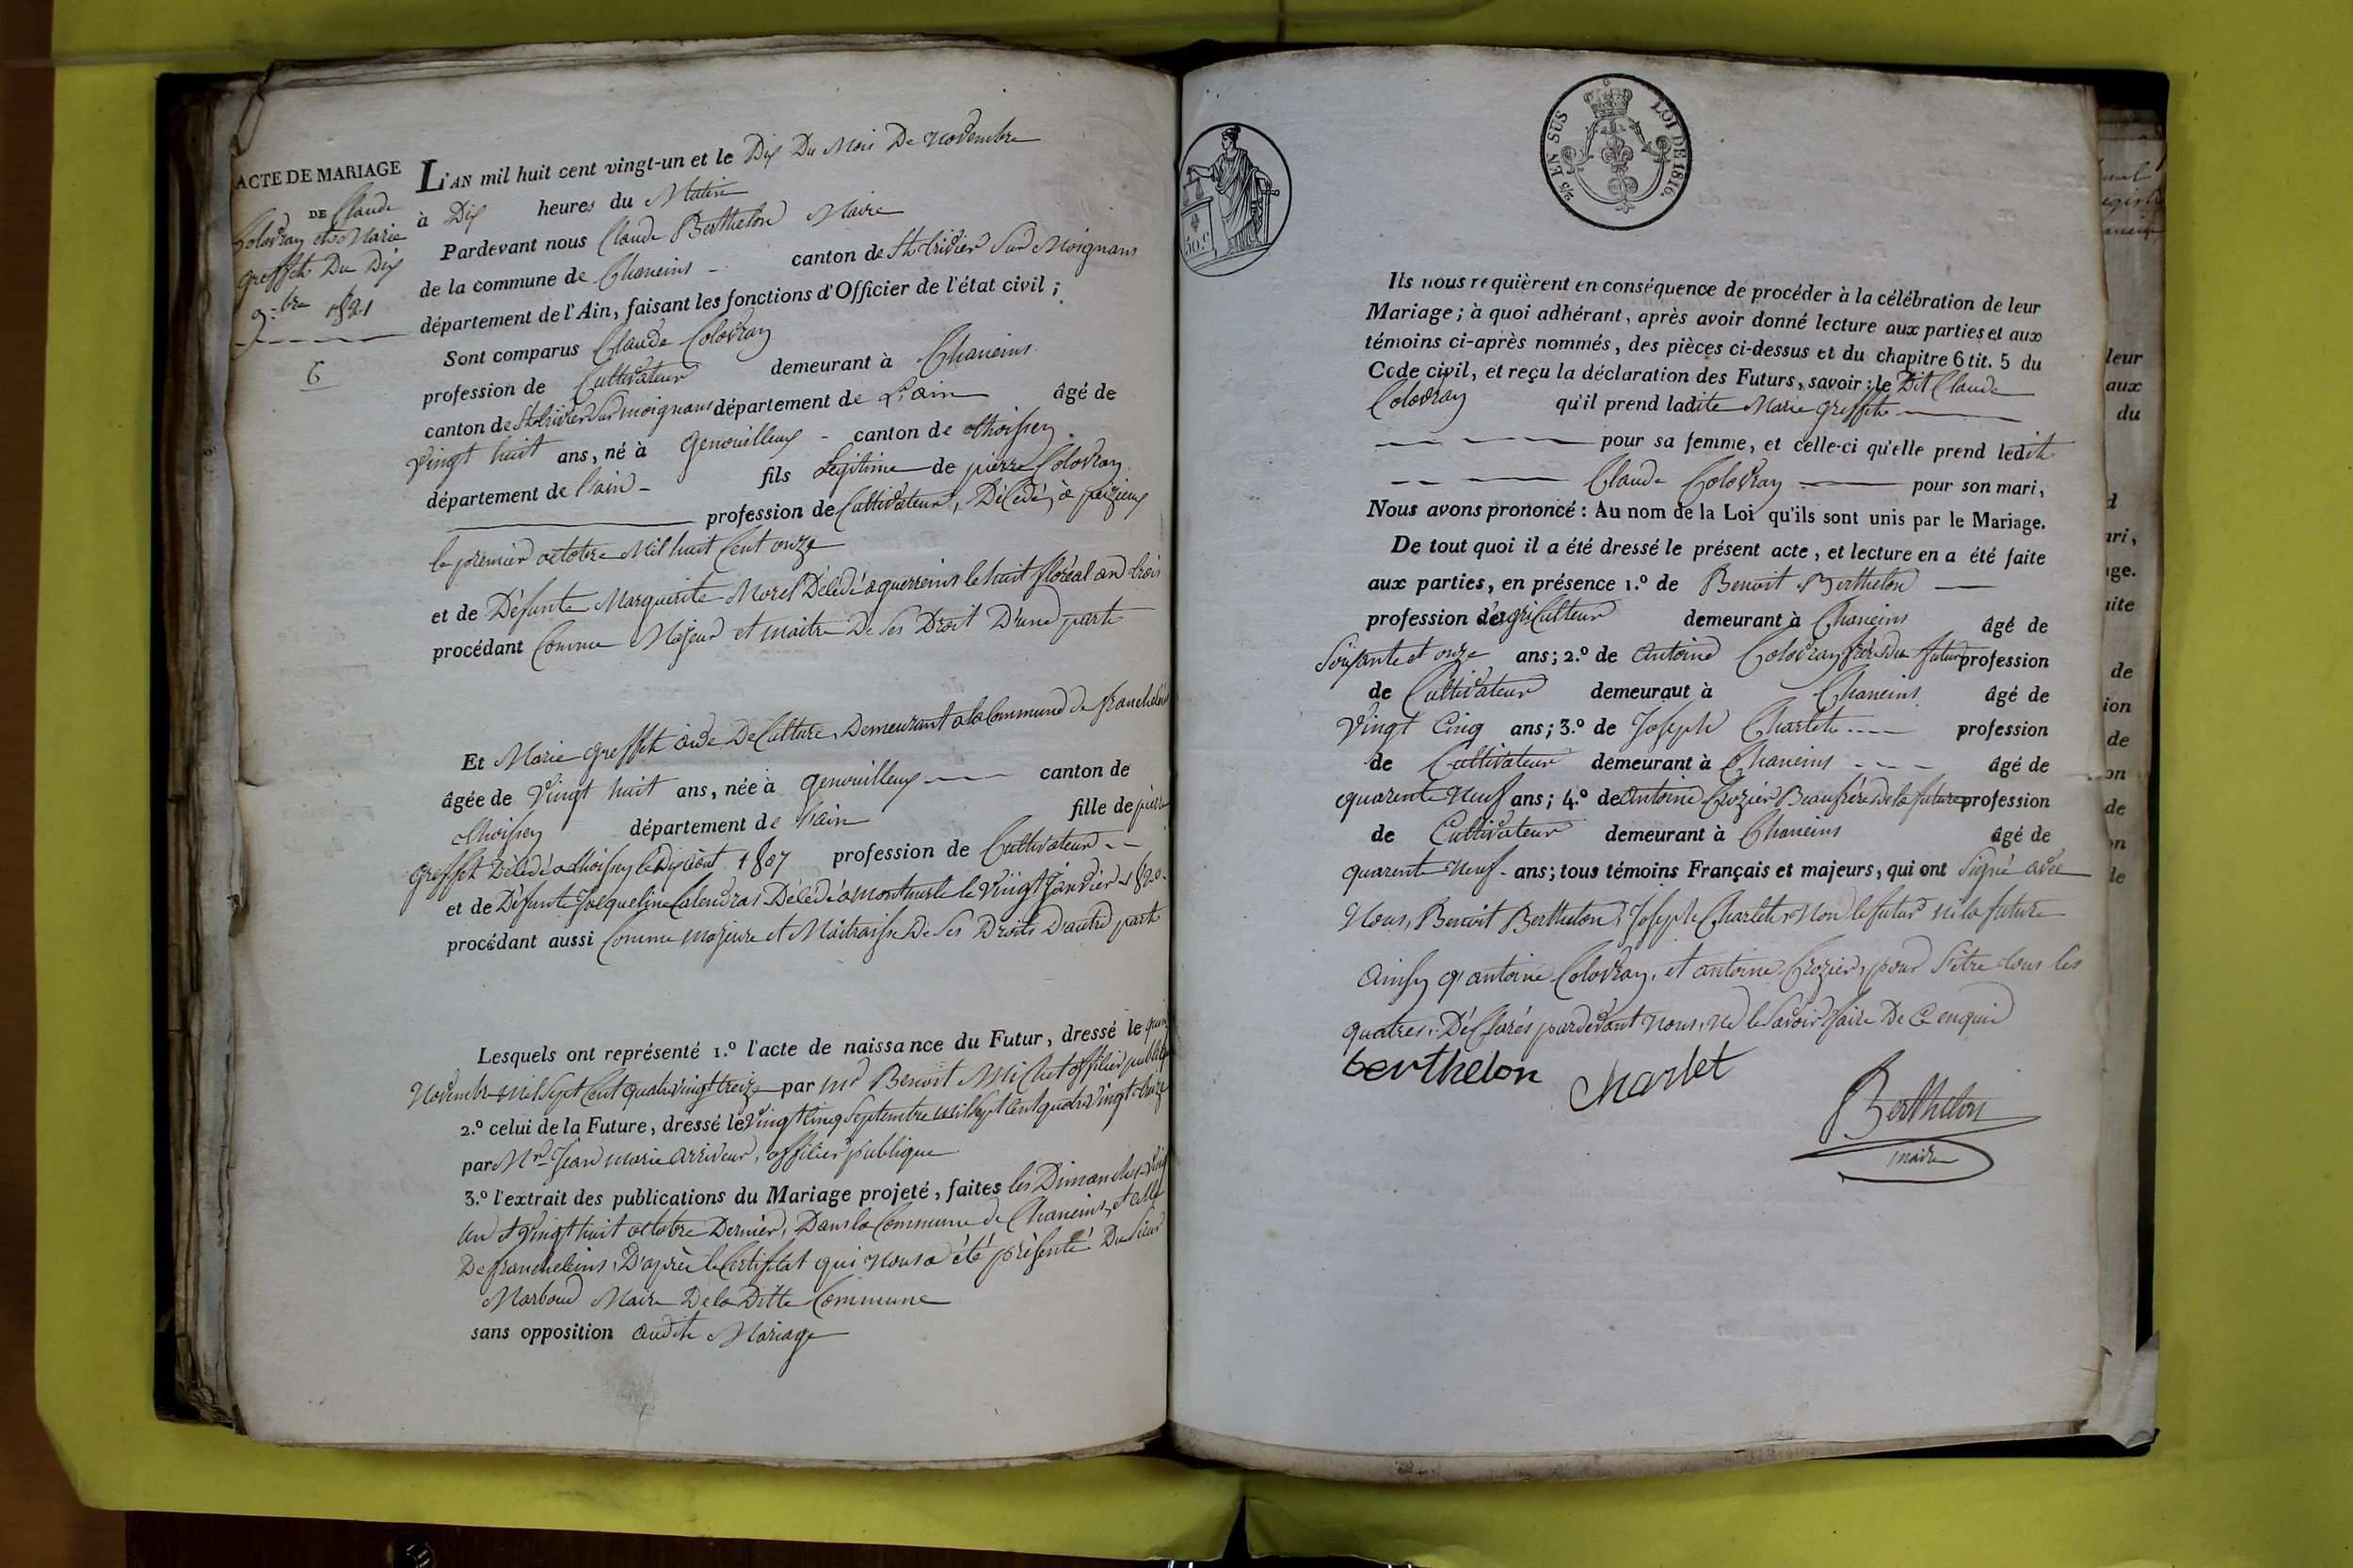 ACTE DE MARIAGE
DE Claude
Colovray et Marie
Greffet Du Dix
9.bre 1821
6
L'AN mil huit cent vingt-un et le Dix Du Mois De Novembre
à Dix heures du Matin
Pardevant nous Claude Berthelon Maire
de la commune de Chaneins canton de St trivier Sur Moignans
département de l'Ain, faisant les fonctions d'Officier de l'état civil ;
Sont comparus Claude Colovray
profession de Cultivateur demeurant à Chaneins
canton de St trivier Sur moignans département de L'ain âgé de
Vingt huit ans, né à Genouilleux canton de thoissey
département de l'ain fils Légitime de pierre Colovray
profession de Cultivateur, Décédé à peizieux
le premier octobre Mil huit Cent onze
et de Défunte Marguerite Morel Décédé a guerreins le huit floréal an trois
procédant Comme Majeur et maitre De Ses Droit D'une part
Et Marie Greffet aide De Culture, Demeurant a la Commune de francheleins
âgée de Vingt huit ans, née à Genouilleux canton de
thoissey département de l'ain fille de pierre
Greffet Décédé a thoissey le Dix août 1807 profession de Cultivateur
et de Défunte Jacqueline Calendras Décédé a Montmerle le Vingt Janvier 1820
procédant aussi Comme majeure et Maitraisse De Ses Droits D'autre part
Lesquels ont représenté 1.º l'acte de naissance du Futur, dressé le
Novembre mil Sept Cent quatre Vingt treize par Mr Benoit Michet officier publique
2.º celui de la Future, dressé le Vingt Cinq Septembre mil Sept Cent quatre Vingt treize
par Mr Jean marie arriveur, officier publique
3.º l'extrait des publications du Mariage projeté, faites les Dimanches Vingt
un et Vingt huit octobre Dernier, Dans la Commune de Chaneins, et celle
De francheleins, D'après le Certificat qui Nous a été présenté Du Sieur
Marboud Maire De la Ditte Commune
sans opposition audit Mariage
50 c.
2/5 EN SUS
LOI DE 1816.
Ils nous requièrent en conséquence de procéder à la célébration de leur
Mariage ; à quoi adhérant, après avoir donné lecture aux parties et aux
témoins ci-après nommés, des pièces ci-dessus et du chapitre 6 tit. 5 du
Code civil, et reçu la déclaration des Futurs, savoir : le Dit Claude
Colovray qu'il prend ladite Marie Greffet
pour sa femme, et celle-ci qu'elle prend ledit
Claude Colovray pour son mari,
Nous avons prononcé : Au nom de la Loi qu'ils sont unis par le Mariage.
De tout quoi il a été dressé le présent acte, et lecture en a été faite
aux parties, en présence 1.º de Benoit Berthelon
profession d'agriculteur demeurant à Chaneins âgé de
Soixante et onze ans ; 2.º de Antoine Colovray frère du futur profession
de Cultivateur demeurant à Chaneins âgé de
Vingt Cinq ans ; 3.º de Joseph Charlet profession
de Cultivateur demeurant à Chaneins âgé de
quarente Neuf ans ; 4.º de Antoine Crozier Beaufrère de la future profession
de Cultivateur demeurant à Chaneins âgé de
quarente Neuf ans ; tous témoins Français et majeurs, qui ont Signé avec
Nous, Benoit Berthelon, Joseph Charlet, Non le futur Ni la future
ainsy q' antoine Colovray, et antoine Crozier, pour S'être tous les
quatres, Déclarés pardevant Nous, Ne le Savoir faire De Ce enquis
berthelon
charlet
Berthelon
maire
leur
aux
du
ari,
age.
aite
de
ion
de
on
de
on
le